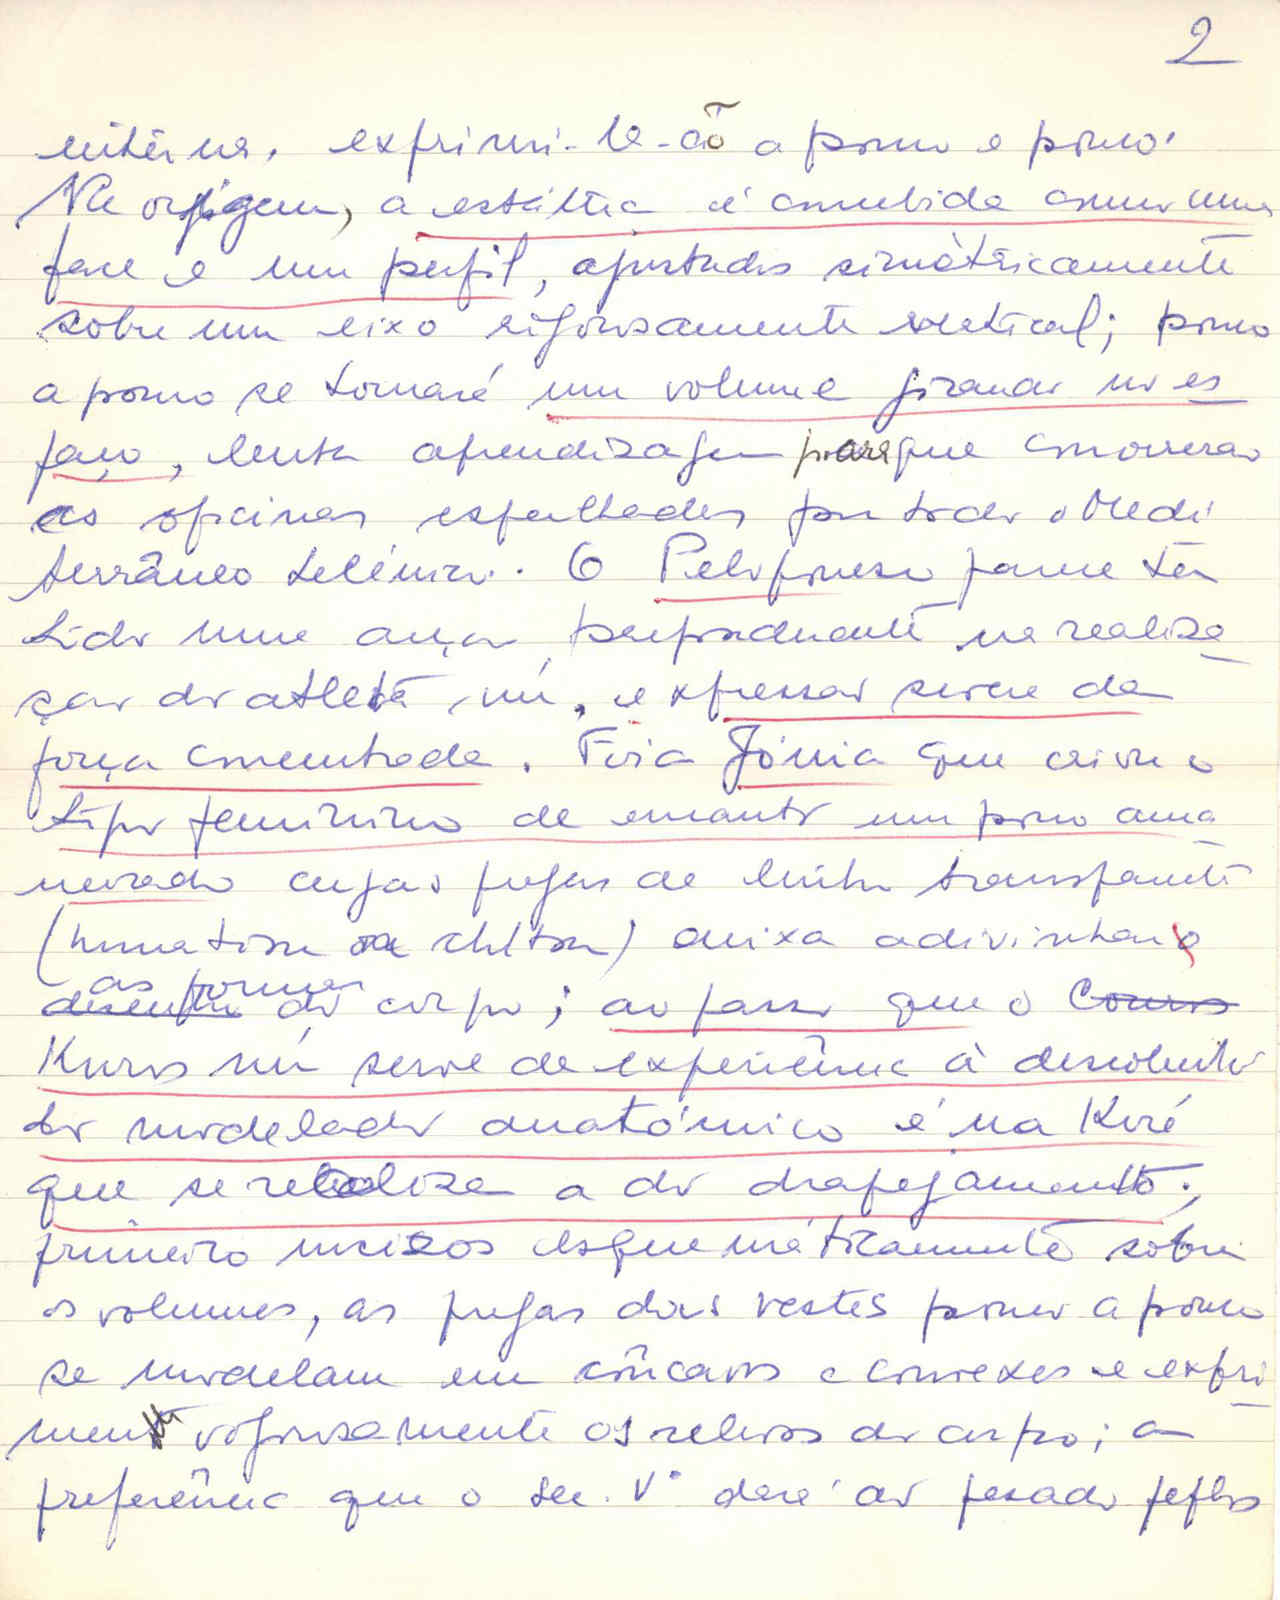 2
interna, exprimi-la-ão a pouco e pouco.
Na origem, a estátua é concebida como uma
face e um perfil, ajustados simètricamente
sobre um eixo rigorosamente vertical; pouco
a pouco se tornará um volume girando no es
paço, lenta aprendizagem para que concorrerão
as oficinas espalhadas por todo o Medi
terrâneo helénico. O Peloponeso parece ter
tido uma acção preponderante na realiza
ção do atleta nú, expressão serena da
força concentrada. Foi a Jónia que criou o
tipo feminino de encanto um pouco ama
neirado cujas pregas de linho transparente
(himation ou chiton) deixa adivinhar
as formas
do corpo; ao passo que o Couros
Kuros nú serve de experiência à descoberta
do modelado anatómico é na Koré
que se realiza a do drapejamento;
primeiro incisos esquemáticamente sobre
os volumes, as pregas das vestes pouco a pouco
se modelam em côncavos e convexos e expri
mem vigorosamente os relevos do corpo; a
preferência que o séc. Vº dará ao pesado peplos